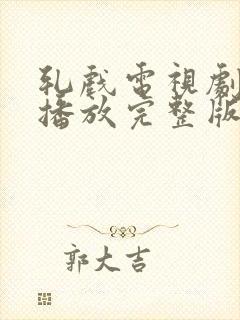 乳戲電視劇
播放完整版
郭大吉